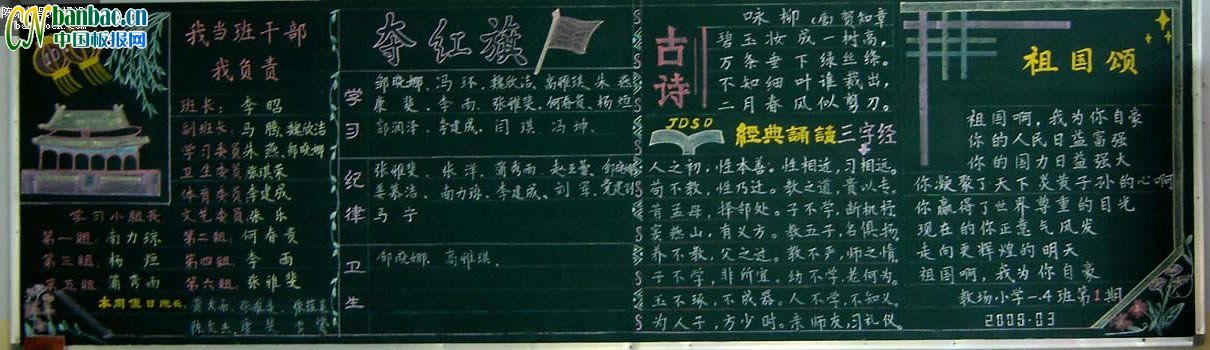 CNbanbao.cn
中国板报网
我当班干部
我负责
班长：李昭
副班长：马腾、魏欣洁
学习委员：朱燕、邹晓娜
卫生委员：张琪荣
体育委员：李建成
文艺委员：张乐
学习小组长
第一组：南力琼 第二组：何春贵
第三组：杨烜 第四组：李雨
第五组：蒲秀雨 第六组：张雅斐
本周值日班长：
夺红旗
学习
邹晓娜、冯环、魏欣洁、高雅琪、朱燕
康斐、李雨、张雅斐、何春贵、杨烜
郭润泽、李建成、闫琪、冯坤
纪律
张雅斐、张洋、蒲秀雨
南力琼、李建成、刘军
马宁
卫生
邹晓娜、高雅琪
古诗
咏柳（唐）贺知章
碧玉妆成一树高，
万条垂下绿丝绦。
不知细叶谁裁出，
二月春风似剪刀。
JDSD
經典誦讀三字经
人之初，性本善。性相近，习相远。
苟不教，性乃迁。教之道，贵以专。
昔孟母，择邻处。子不学，断机杼
窦燕山，有义方。教五子，名俱扬
养不教，父之过。教不严，师之惰。
子不学，非所宜。幼不学，老何为。
玉不琢，不成器。人不学，不知义。
为人子，方少时。亲师友，习礼仪。
祖国颂
祖国啊，我为你自豪
你的人民日益富强
你的国力日益强大
你凝聚了天下炎黄子孙的心啊
你赢得了世界尊重的目光
现在的你正意气风发
走向更辉煌的明天
祖国啊，我为你自豪
教场小学一.4班第1期
2009.03